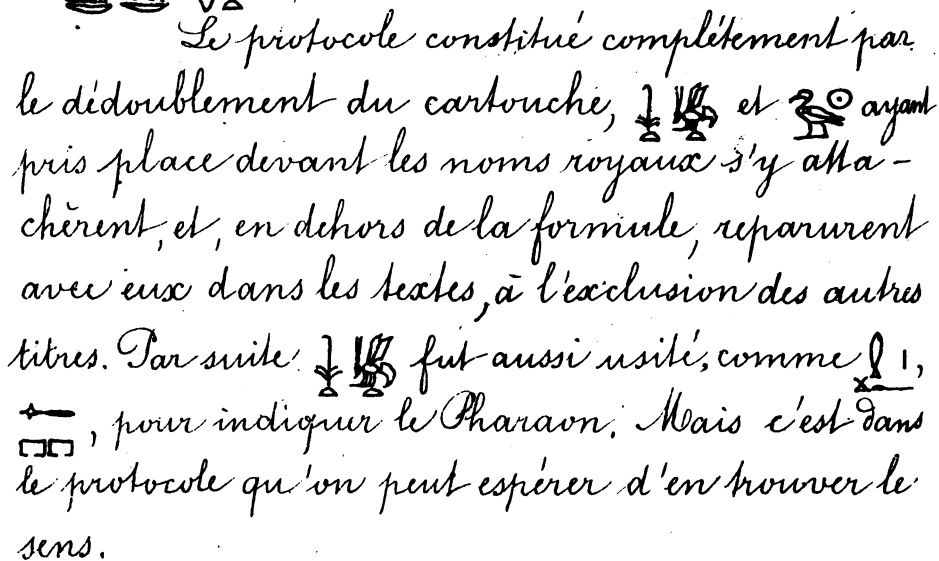 Le protocole constitué complétement par
le dédoublement du cartouche, 𓇓𓆤 et 𓅭𓇳 ayant
pris place devant les noms royaux s'y atta-
chèrent, et, en dehors de la formule, reparurent
avec eux dans les textes, à l'exclusion des autres
titres. Par suite 𓇓𓆤 fut aussi usité, comme
, pour indiquer le Pharaon. Mais c'est dans
le protocole qu'on peut espérer d'en trouver le
sens.